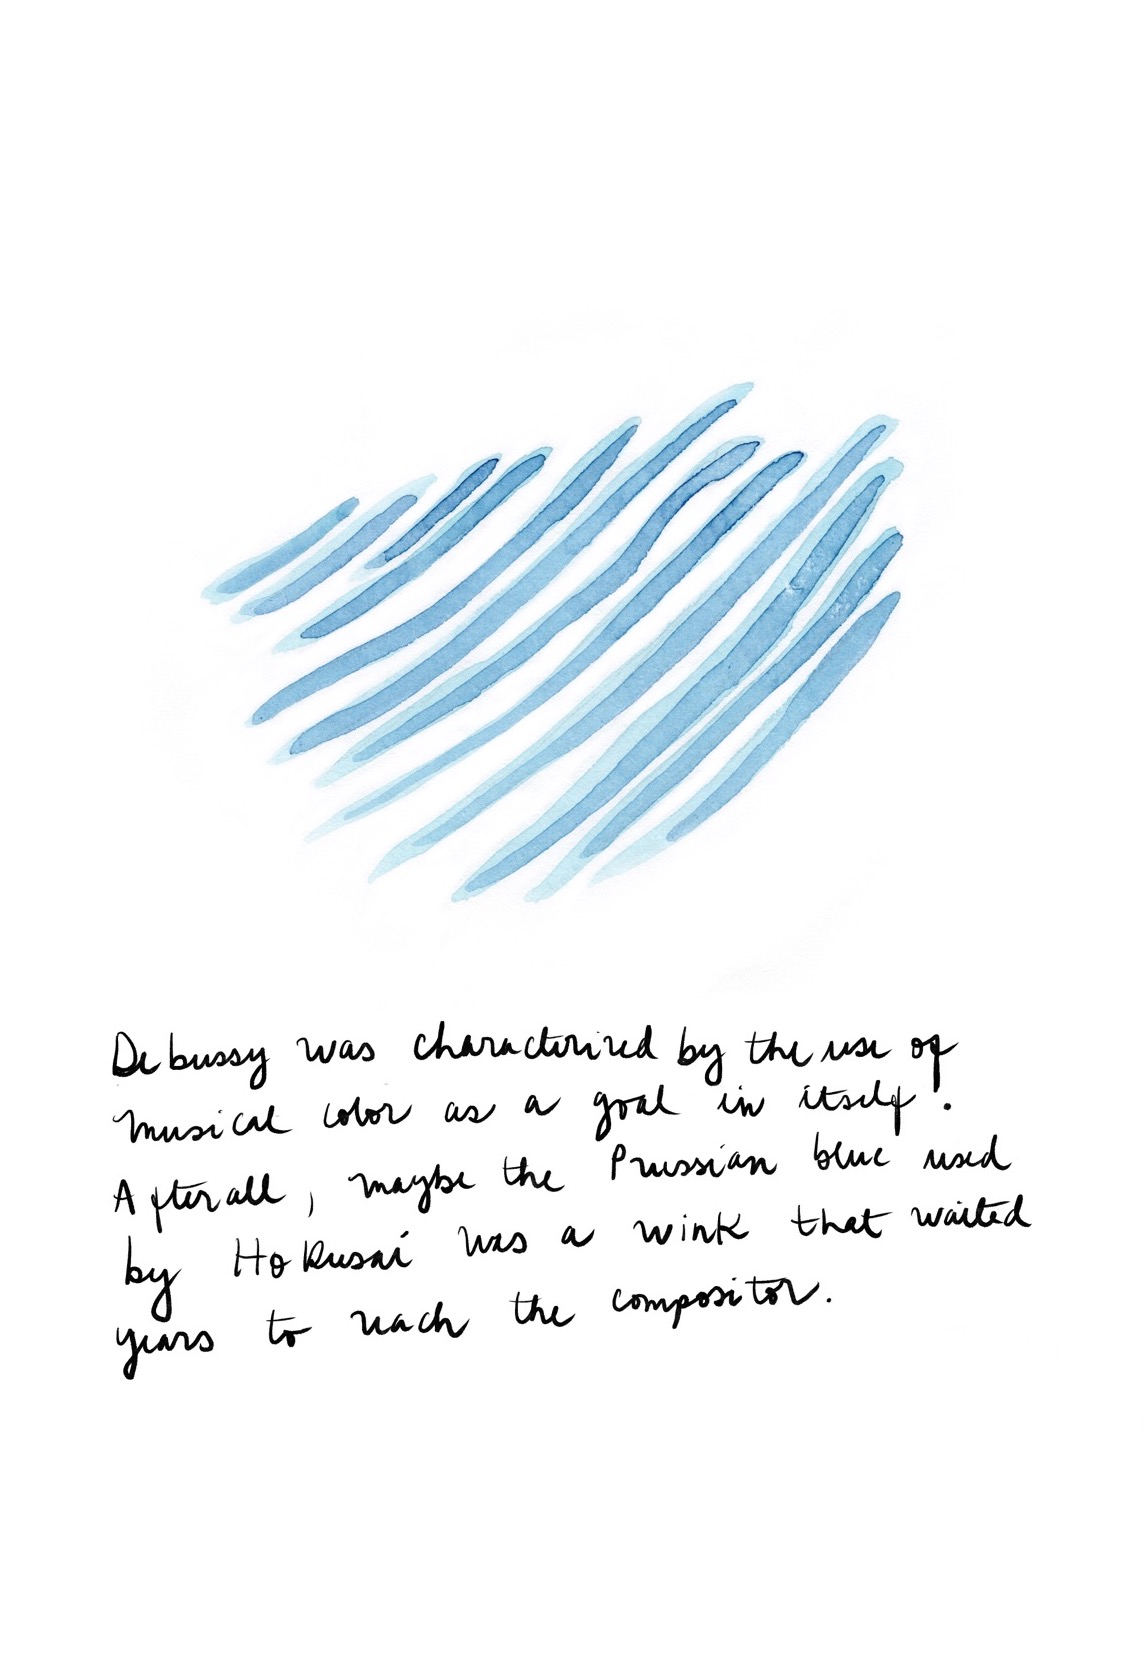 Debussy was characterized by the use of
musical color as a goal in itself.
After all, maybe the Prussian blue used
by Hokusai was a wink that waited
years to reach the compositor.